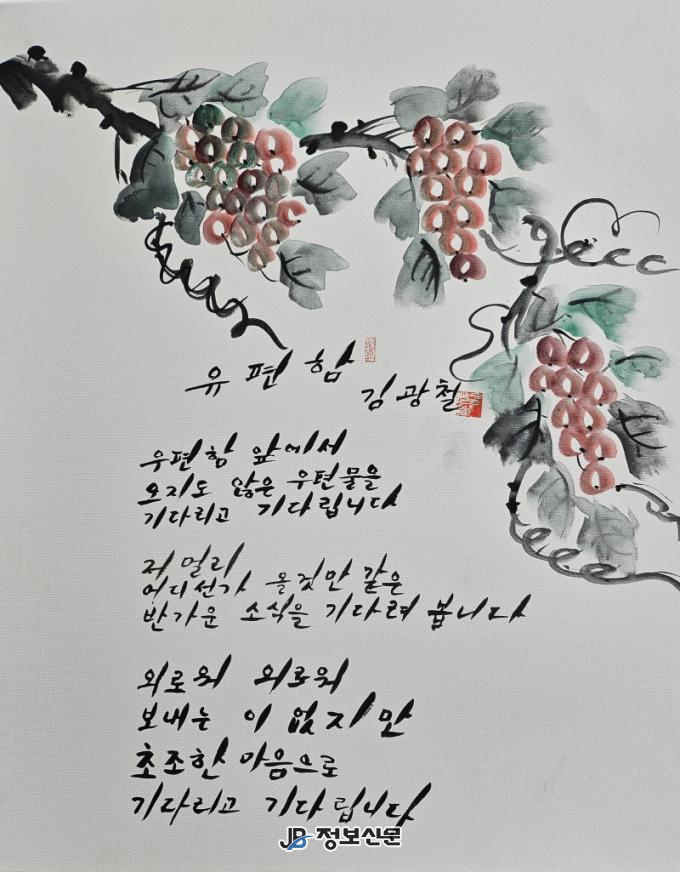 유편함
김광철
우편함 앞에서
오지도 않은 우편물을
기다리고 기다립니다
저 멀리
어디선가 올것만 같은
반가운 소식을 기다려 봅니다
외로워 외로워
보내는 이 없지만
초조한 마음으로
기다리고 기다립니다
JB 정보신문